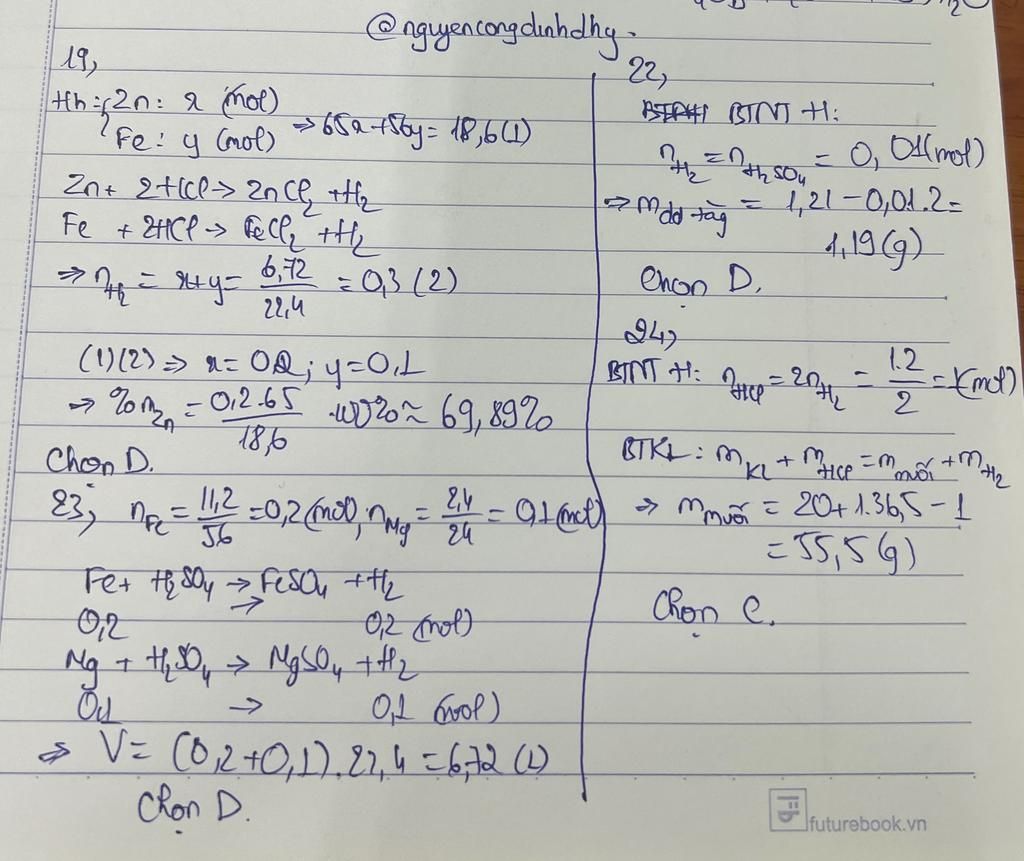 @nguyencongdinhdhg.
19,
Hh: { Zn: x (mol)
Fe: y (mol) => 65x+56y= 18,6 (1)
Zn + 2HCl -> ZnCl₂ + H₂
Fe + 2HCl -> FeCl₂ + H₂
=> n_H₂ = x+y = 6,72/22,4 = 0,3 (2)
(1)(2) => x = 0,2; y = 0,1
=> %m_Zn = 0,2.65/18,6 .100% ≈ 69,89%
Chọn D.
23, n_Fe = 11,2/56 = 0,2 (mol), n_Mg = 2,4/24 = 0,1 (mol)
Fe + H₂SO₄ -> FeSO₄ + H₂
0,2 -> 0,2 (mol)
Mg + H₂SO₄ -> MgSO₄ + H₂
0,1 -> 0,1 (mol)
=> V = (0,2+0,1).22,4 = 6,72 (L)
Chọn D.
22,
BTNT H:
n_H₂ = n_H₂SO₄ = 0,01 (mol)
=> m_dd tăg = 1,21 - 0,01.2 =
1,19 (g)
Chọn D.
24,
BTNT H: n_HCl = 2n_H₂ = 1.2/2 = 1 (mol)
BTKL: m_KL + m_HCl = m_muối + m_H₂
=> m_muối = 20 + 1.36,5 - 1
= 55,5 (g)
Chọn C.
futurebook.vn